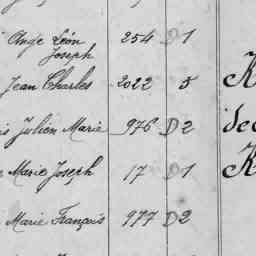 Ange Léon 254 D 1
Joseph
Jean Charles 2022 5
Julien Marie 976 D 2
Marie Joseph 17 D 1
Marie François 977 D 2